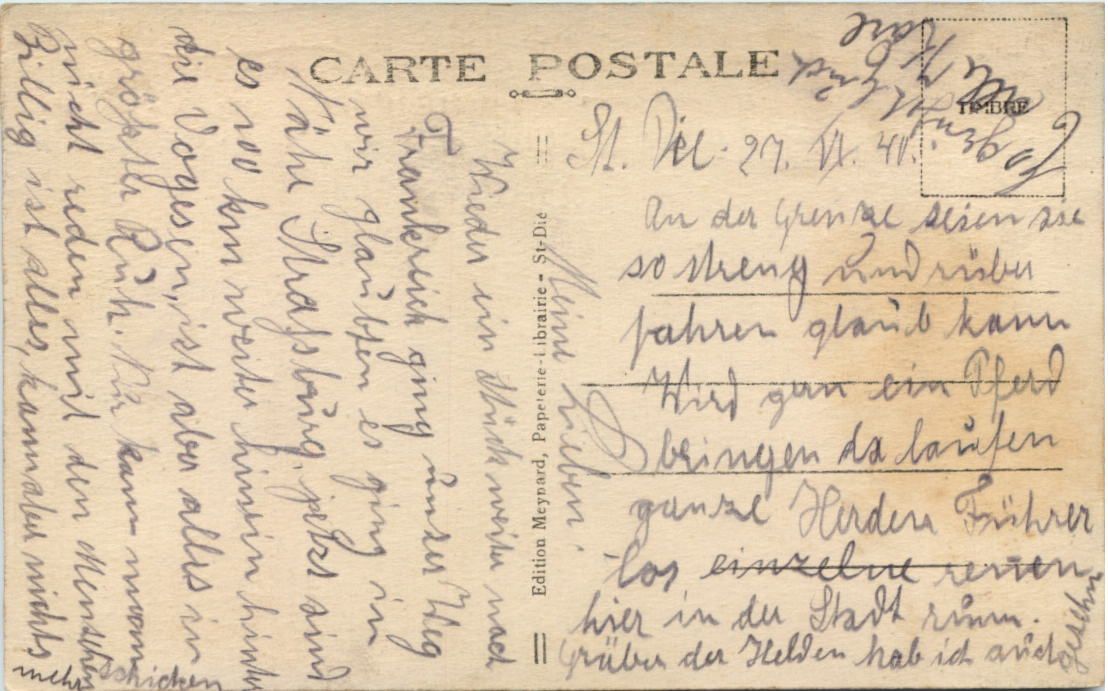 CARTE POSTALE
TIMBRE
Edition Meynard, Papeterie-Librairie - St-Dié
St. Die. 27. VI. 40.
Meine Lieben.
Wieder ein Stück weiter nach
Frankreich ging unser Weg
wir glaubten es ging in
Nähe Strassburg. jetzt sind
es 100 km weiter hinein hinter
die Vogesen, ist aber alles in
größter Ruh. Nur kann man
nicht reden mit den Menschen
Billig ist alles, kann aber nichts
mehr schicken
An der Grenze seien sie
so streng und rüber
fahren glaub kann
Wird gern ein Pferd
bringen da laufen
ganze Herden Führer
los einzelne rennen
hier in der Stadt rum.
Gräber der Helden hab ich auch
gesehn